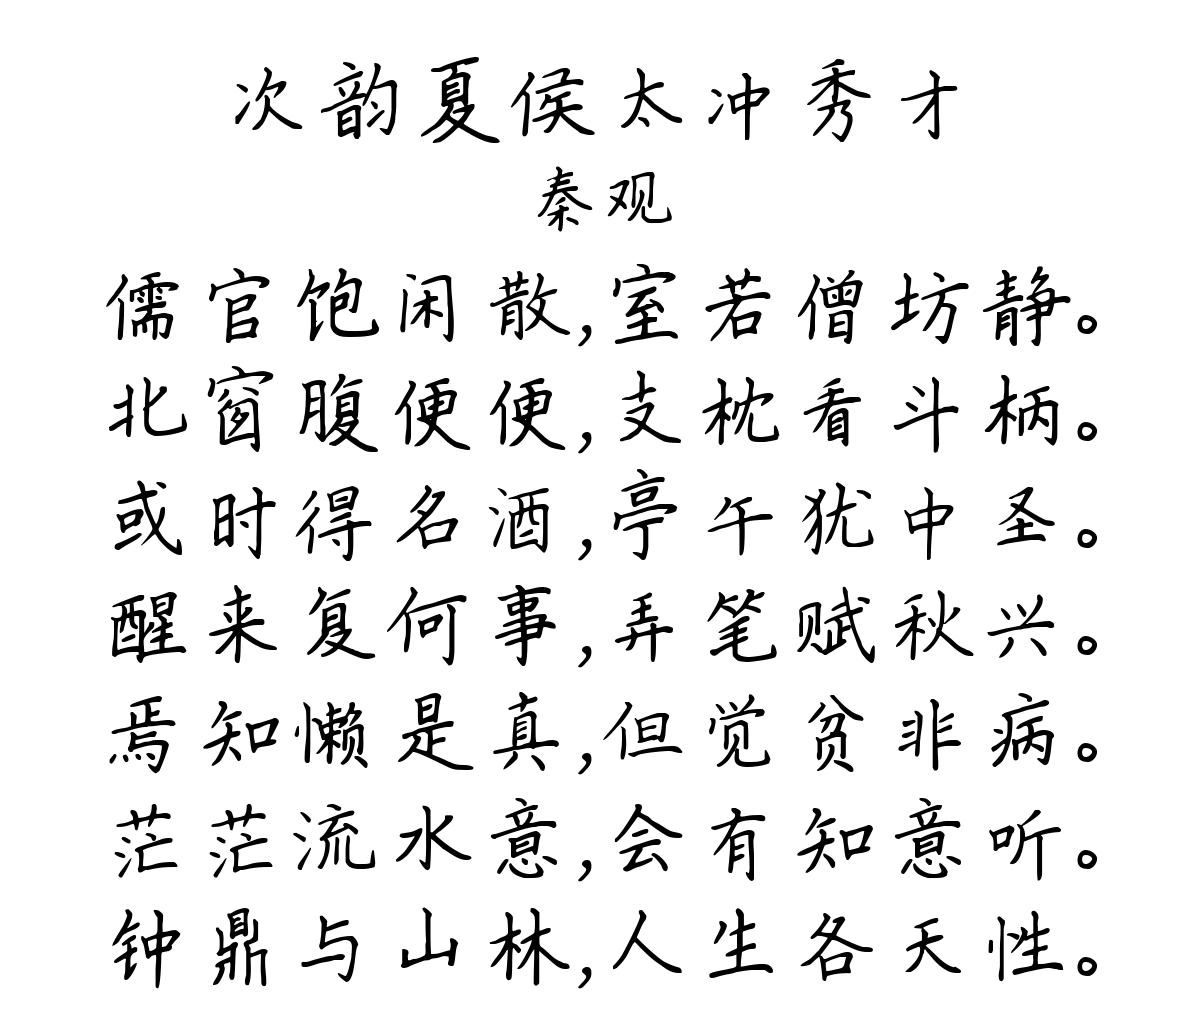 次韵夏侯太冲秀才
秦观
儒官饱闲散,室若僧坊静。
北窗腹便便,支枕看斗柄。
或时得名酒,亭午犹中圣。
醒来复何事,弄笔赋秋兴。
焉知懒是真,但觉贫非病。
茫茫流水意,会有知意听。
钟鼎与山林,人生各天性。